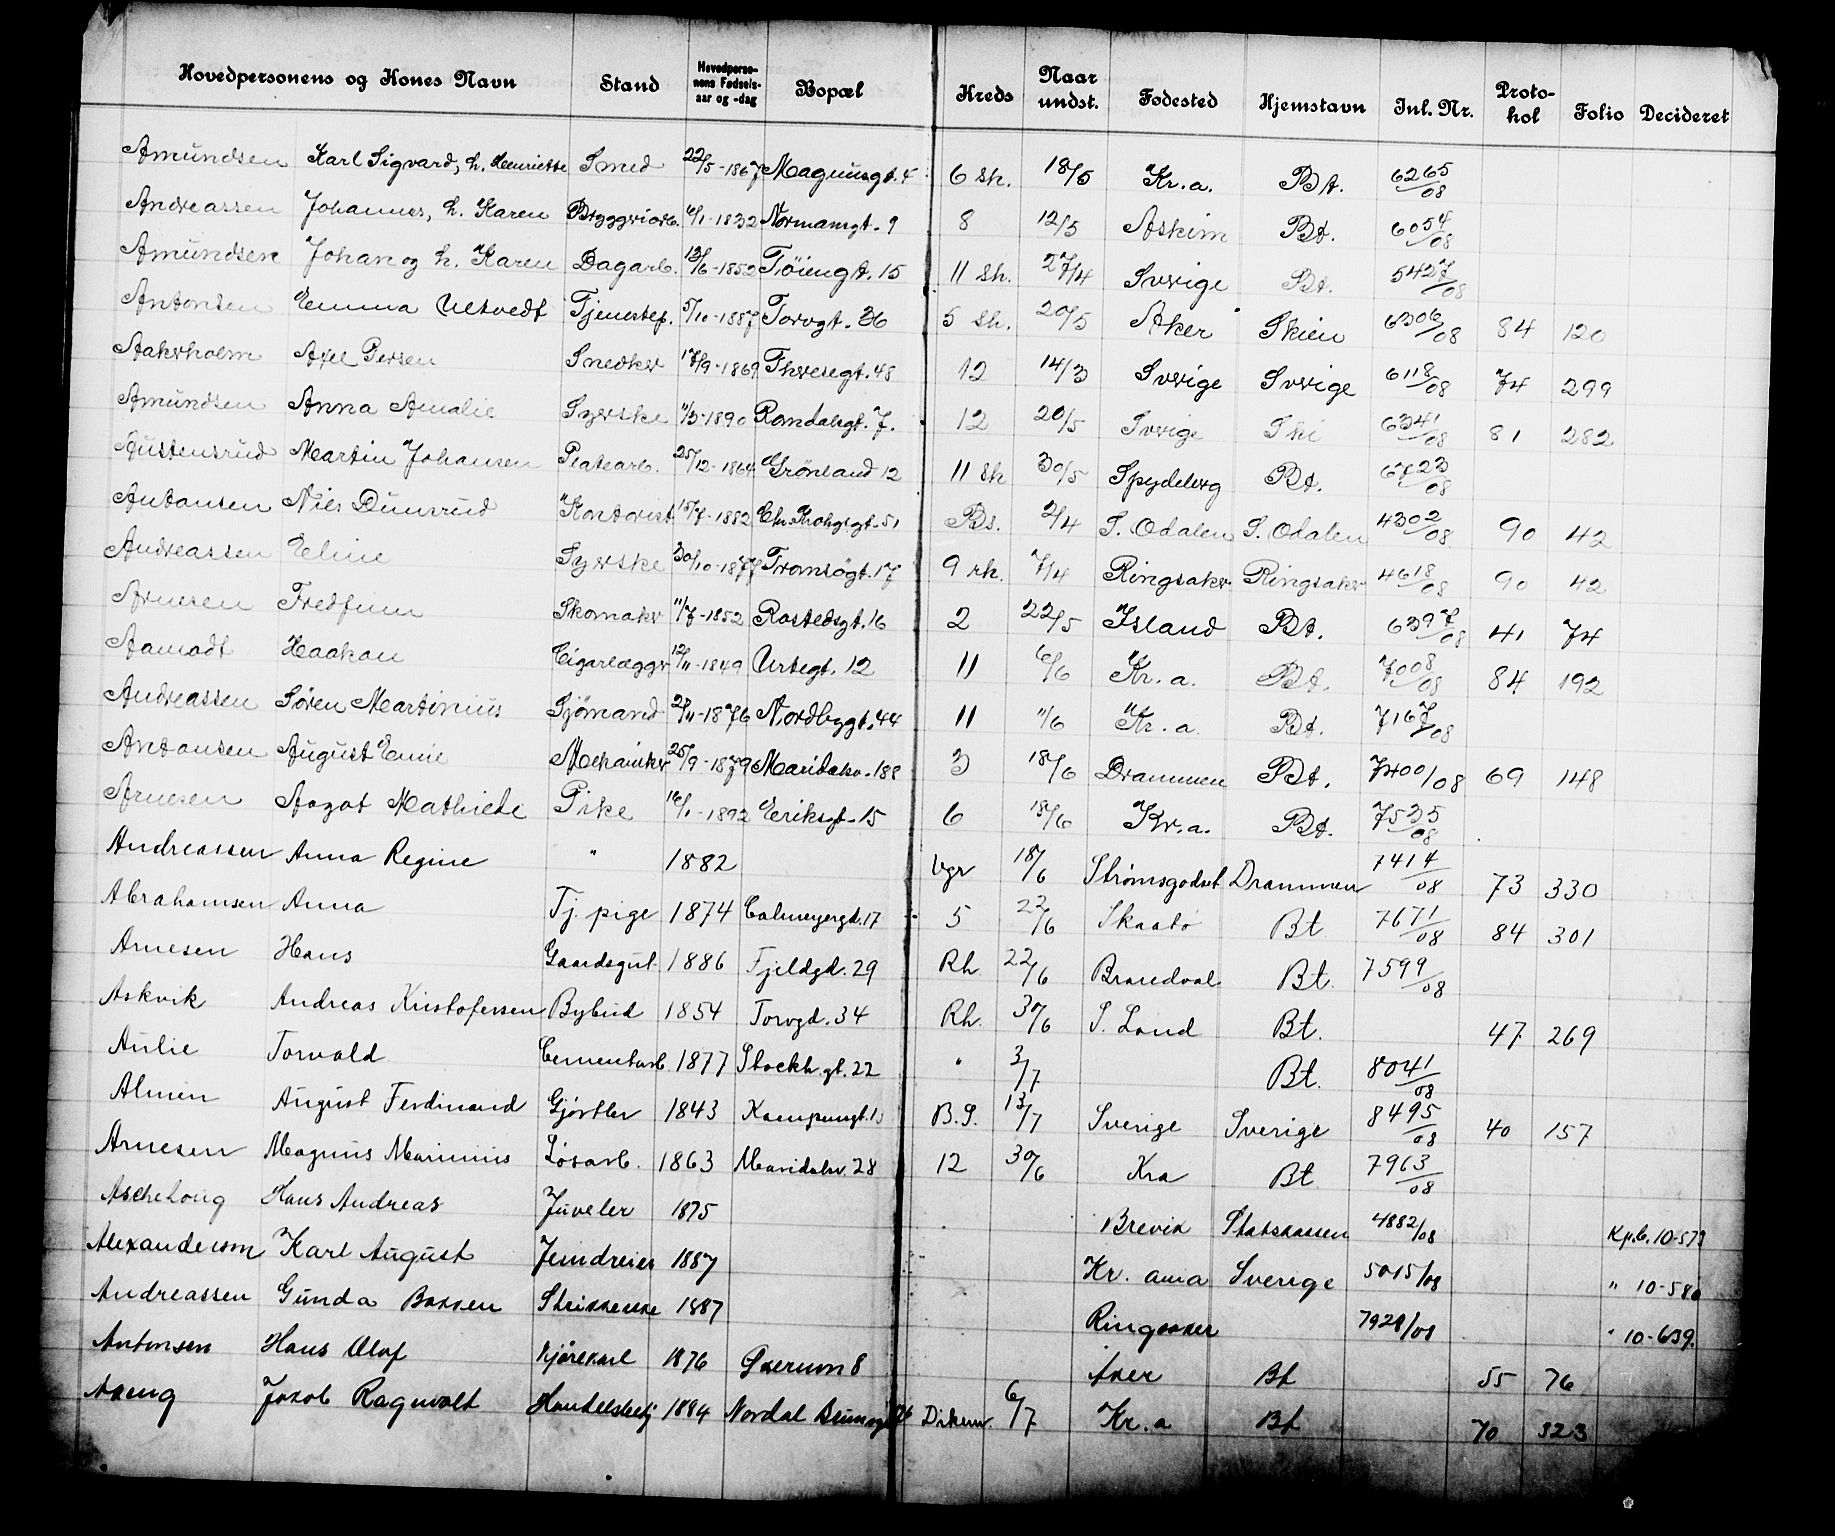 Hovedpersonens og Kones Navn Stand Hovedpersonens Fødsels-aar og -dag Bopæl Kreds Naar undst. Fødested Hjemstavn Inl. Nr. Protokol Folio Decideret
Amundsen Karl Sigvard, h. Henriette Smed 22/5-1867 Magnusgt. 4 6 Sh. 18/5 Kr.a. Bt. 6265/08
Andreassen Johannes, h. Karen Bryggeriarb. 6/1-1832 Normansgt. 9 8 12/5 Askim Bt. 6054/08
Amundsen Johan og h. Karen Dagarb. 13/6-1852 Tøiengt. 15 11 Sh. 27/4 Sverige Bt. 5427/08
Antonsen Emma Ultvedt Tjenestep. 5/10-1887 Torvgt. 36 5 Sh. 20/5 Aker Skien 6306/08 84 120
Aakerholm Axel Persen Snedker 17/9-1869 Theresegt. 48 12 14/3 Sverige Sverige 6118/08 74 299
Amundsen Anna Amalie Syerske 11/3-1890 Romdalsgt. 7. 12 20/5 Sverige Ski 6341/08 81 282
Austensrud Martin Johansen Platearb. 25/12-1864 Grønland 12 11 Sh 30/5 Spydeberg Bt. 6723/08
Antonsen Nils Dunsrud Kontorist 15/7-1882 Chr. Krohgsgt. 51 Bs. 2/4 S. Odalen S. Odalen 4302/08 90 42
Andreassen Eline Syerske 30/10-1877 Tromsøgt. 17 9 rh. 7/4 Ringsaker Ringsaker 4618/08 90 42
Arnesen Fredfinn Skomaker 11/7-1852 Rostedsgt. 16 2 22/5 Island Bt. 6397/08 41 74
Aamodt Haakon Cigarlægger 12/11-1849 Urtegt. 12 11 6/6 Kr. a. Bt. 7008/08 84 192
Andreassen Søren Martinius Sjømand 2/11-1876 Nordbygt. 44 11 11/6 Kr. a. Bt. 7167/08
Antonsen August Emil Mekaniker 25/9-1879 Maridalsv. 188 3 18/6 Drammen Bt. 7400/08 69 148
Arnesen Aagot Mathilde Pike 16/1-1892 Eriksgt. 15 6 18/6 Kr.a. Bt. 7535/08
Andreassen Anna Regine " 1882 Vgr 18/6 Strømsgodset Drammen 7414/08 73 330
Abrahamsen Anna Tj. pige 1874 Calmeyergd. 17 5 22/6 Skaatø Bt 7671/08 84 301
Arnesen Hans Gaardsgut 1886 Fjeldgd. 29 Rh. 22/6 Brandval Bt. 7599/08
Askvik Andreas Kristofersen Bybud 1854 Torvgd. 34 Rh. 30/6 S. Land Bt. 47 269
Aulie Torvald Cementarb. 1877 Stockh.gt. 22 " 3/7 Bt. 8041/08
Almen August Ferdinand Gjørtler 1843 Kampengt. 13 B.S. 13/7 Sverige Sverige 8495/08 40 157
Arnesen Magnus Marinius Løsarb. 1863 Maridalsv. 28 12 30/6 Kra Bt. 7963/08
Aschehoug Hans Andreas Juveler 1875 Brevik Statskassen 4882/08 Kp.b. 10-573
Alexanderson Karl August Jerndreier 1887 Kr. ania Sverige 5015/08 " 10-580
Andreassen Gunda Bakken Strikkerske 1887 Ringsaker 7928/08 " 10-639.
Antonsen Hans Olaf Kjørekarl 1876 Økernv 8 Aker Bt 55 76
Aaeng Jakob Ragnvald Handelsbetj 1884 Nordal Brunsgt Dikem. 6/7 Kr. a Bt 70 323